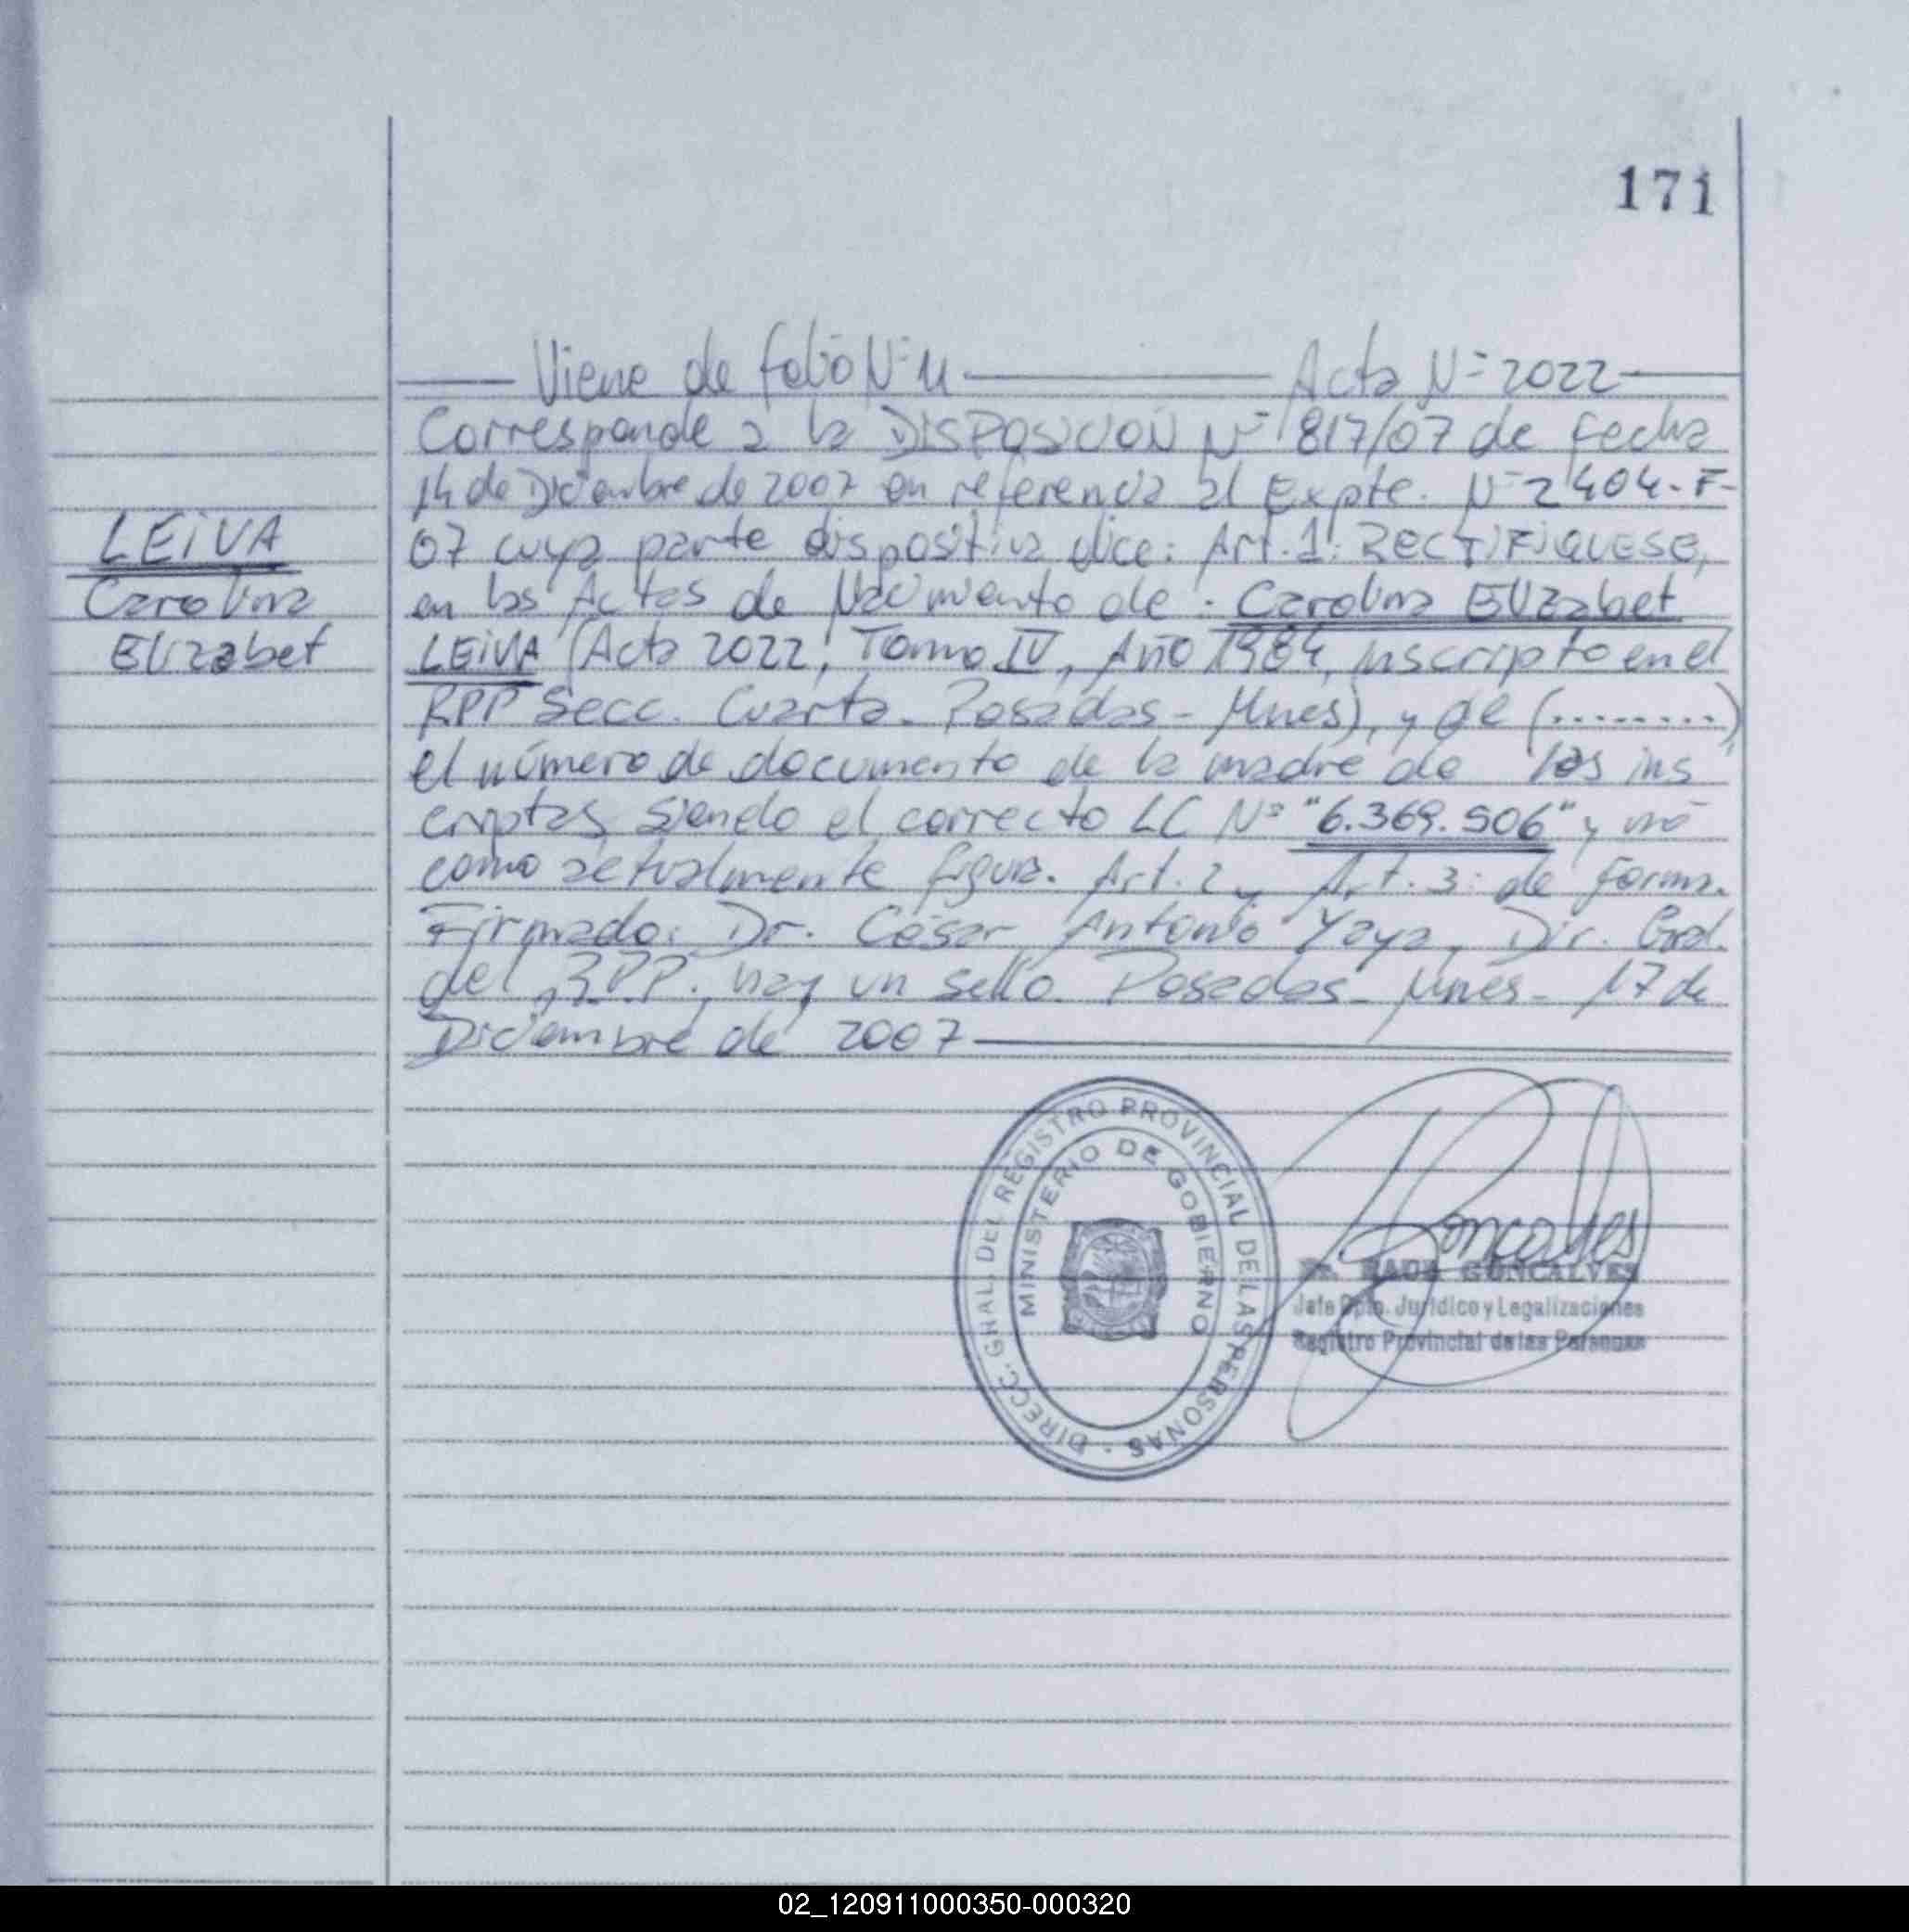 171
Viene de folio Nº 11 Acta Nº 2022
Corresponde a la DISPOSICION Nº 1817/07 de fecha
14 de Diciembre de 2007 en referencia al Expte. Nº 2404-F-
07 cuya parte dispositiva dice: Art. 1: RECTIFIQUESE,
LEIVA
Carolina
Elizabet
en las Actas de Nacimiento de: Carolina Elizabet
LEIVA (Acta 2022, Tomo IV, Año 1984, inscripto en el
RPP Secc. Cuarta. Posadas - Mnes), y de (.........)
el número de documento de la madre de las ins
criptas, siendo el correcto LC Nº "6.369.906" y no
como actualmente figura. Art. 2 y Art. 3: de forma.
Firmado: Dr. César Antonio Yaya, Dir. Gral.
del R.P.P., hay un sello. Posadas - Mnes - 17 de
Diciembre de 2007
DIRECC. GRAL. DEL REGISTRO PROVINCIAL DE LAS PERSONAS
MINISTERIO DE GOBIERNO
Goncalves
Dr. RAUL GONCALVES
Jefe Dpto. Jurídico y Legalizaciones
Registro Provincial de las Personas
02_120911000350-000320